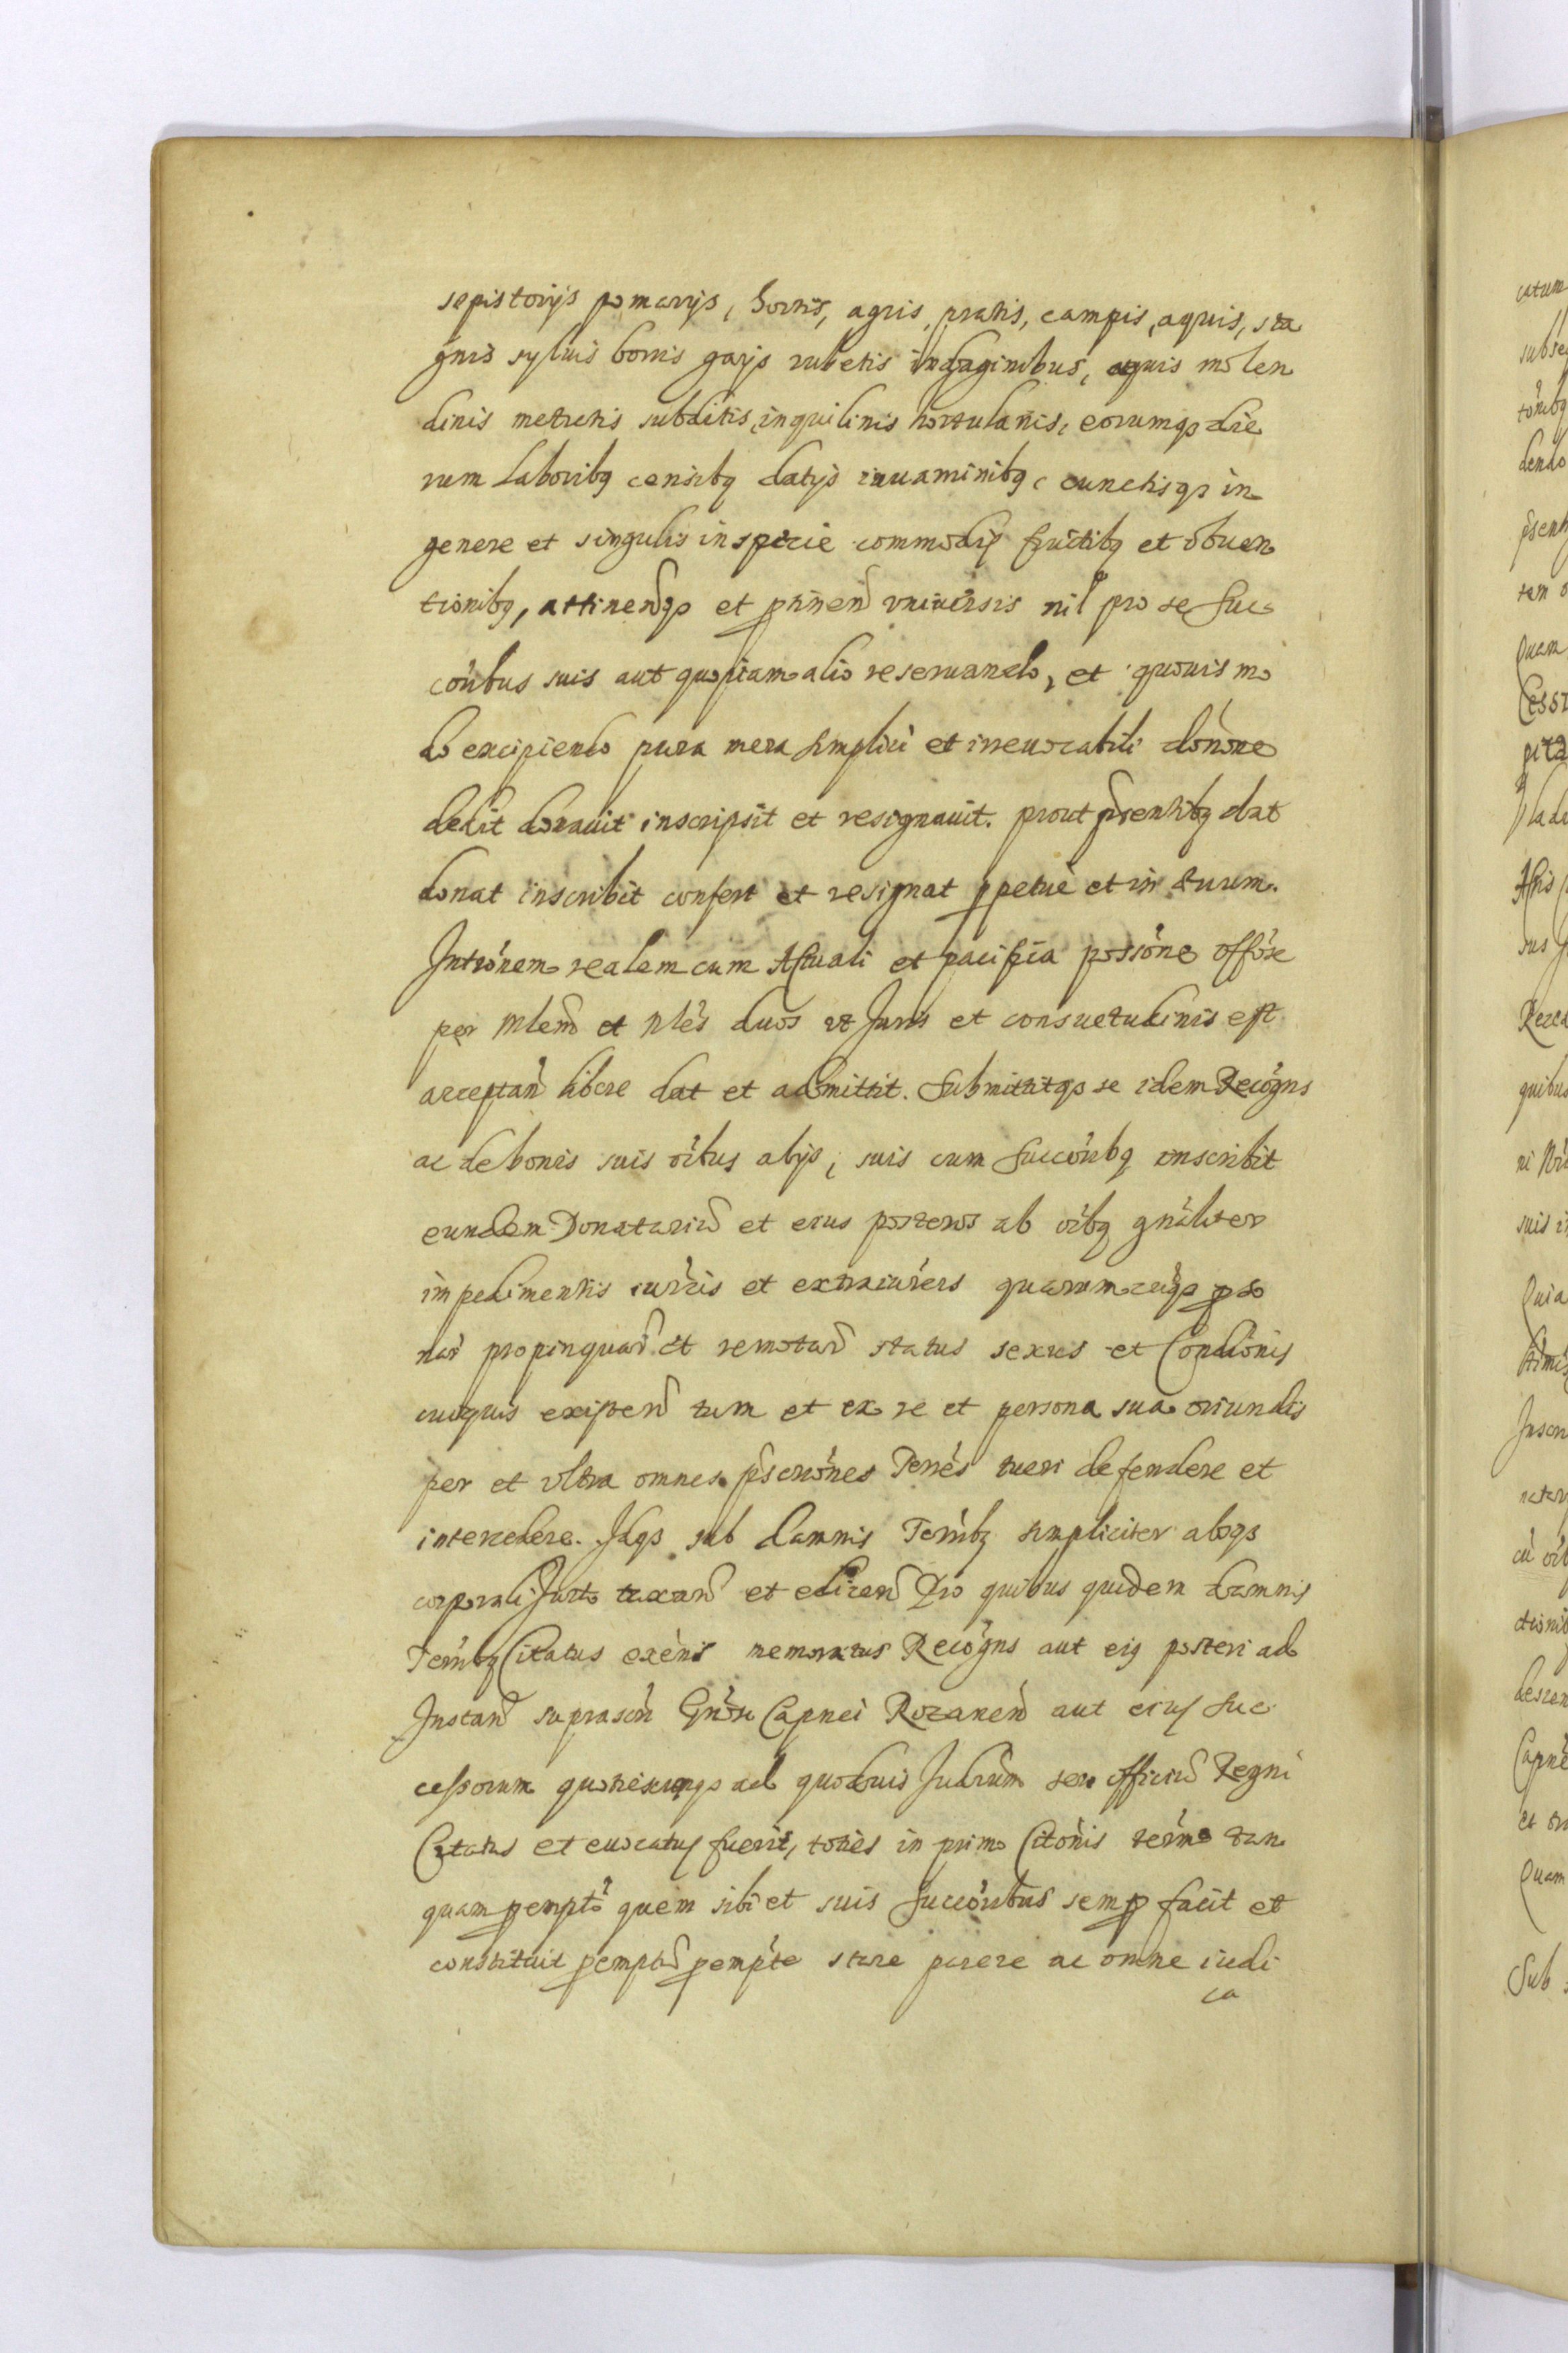 sepistorijs pomarijs, hortis, agris, pratis, campis, aquis, sta
gnis syluis borris gaijs rubetis indaginibus, aquis molen
dinis metretis subditis, inquilinis hortulanis, eorumqȝ die
rum Laboribȝ censibȝ datijs iuuaminibȝ cunctisqȝ in
genere et singulis in specie commodis fructibȝ et obuen
tionibȝ, attinenqȝ et ptinen vniuersis nil pro se suc
coribus suis aut quopiam alio reseruando, et quouis mo
do excipiendo pura mera simplici et irreuocabili donone
dedit donauit inscripsit et resignauit. prout pñsentibȝ dat
donat inscribit confert et resignat ppetuè et in æuum.
Intronem realem cum Actuali et pacifica possione offose
per Mlem et Nles duos vt Juris et consuetudinis est
acceptan libere dat et admittit. Submittitqȝ se idem Recogns
ac de bonis suis oibus alijs, suis cum succoribȝ inscribit
eundem Donatariu et eius posteros ab oibȝ gnaliter
impedimentis iurcis et extraiurcis quarumcuqȝ pso
nar propinquar et remotar status sexus et Condionis
cuiquis existen tum et ex re et persona sua oriundis
per et vltra omnes pscriones Terres tueri defendere et
intercedere. Idqȝ sub damnis Terribȝ simpliciter absqȝ
corporali Jurto taxan et edicen Pro quibus quidem damnis
Terribȝ Citatus exens memoratus Recogns aut eiȝ posteri ad
Instan suprascri Gnosi Capnei Rozanen aut eius suc
cessorum quotiescunqȝ ad quoduis Judrum seu officiu Regni
Citatus et euocatus fuerit, toties in primo Citonis termo tan
quam pempto quem sibi et suis succoribus semp facit et
constituit pemptu pempte stare parere ac omne iudi
ca